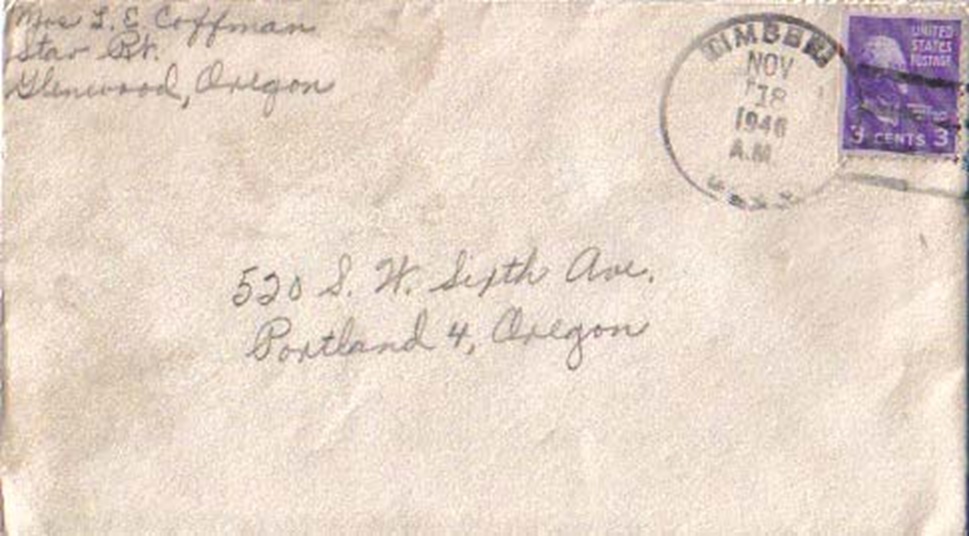 Mrs L. E. Coffman
Star Rt.
Glenwood, Oregon
TIMBER
NOV
18
1946
A.M.
UNITED
STATES
POSTAGE
3 CENTS 3
520 S. W. Sixth Ave.
Portland 4, Oregon